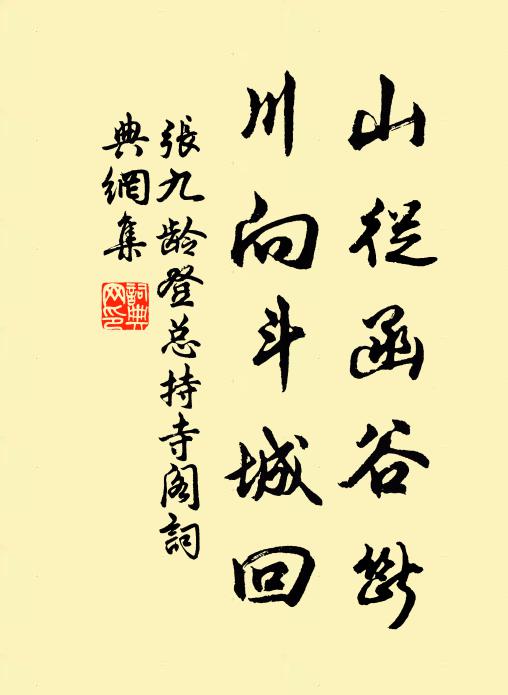 山從函谷斷
川向斗城回
張九龄登总持寺阁詞
典網集
詞典网印